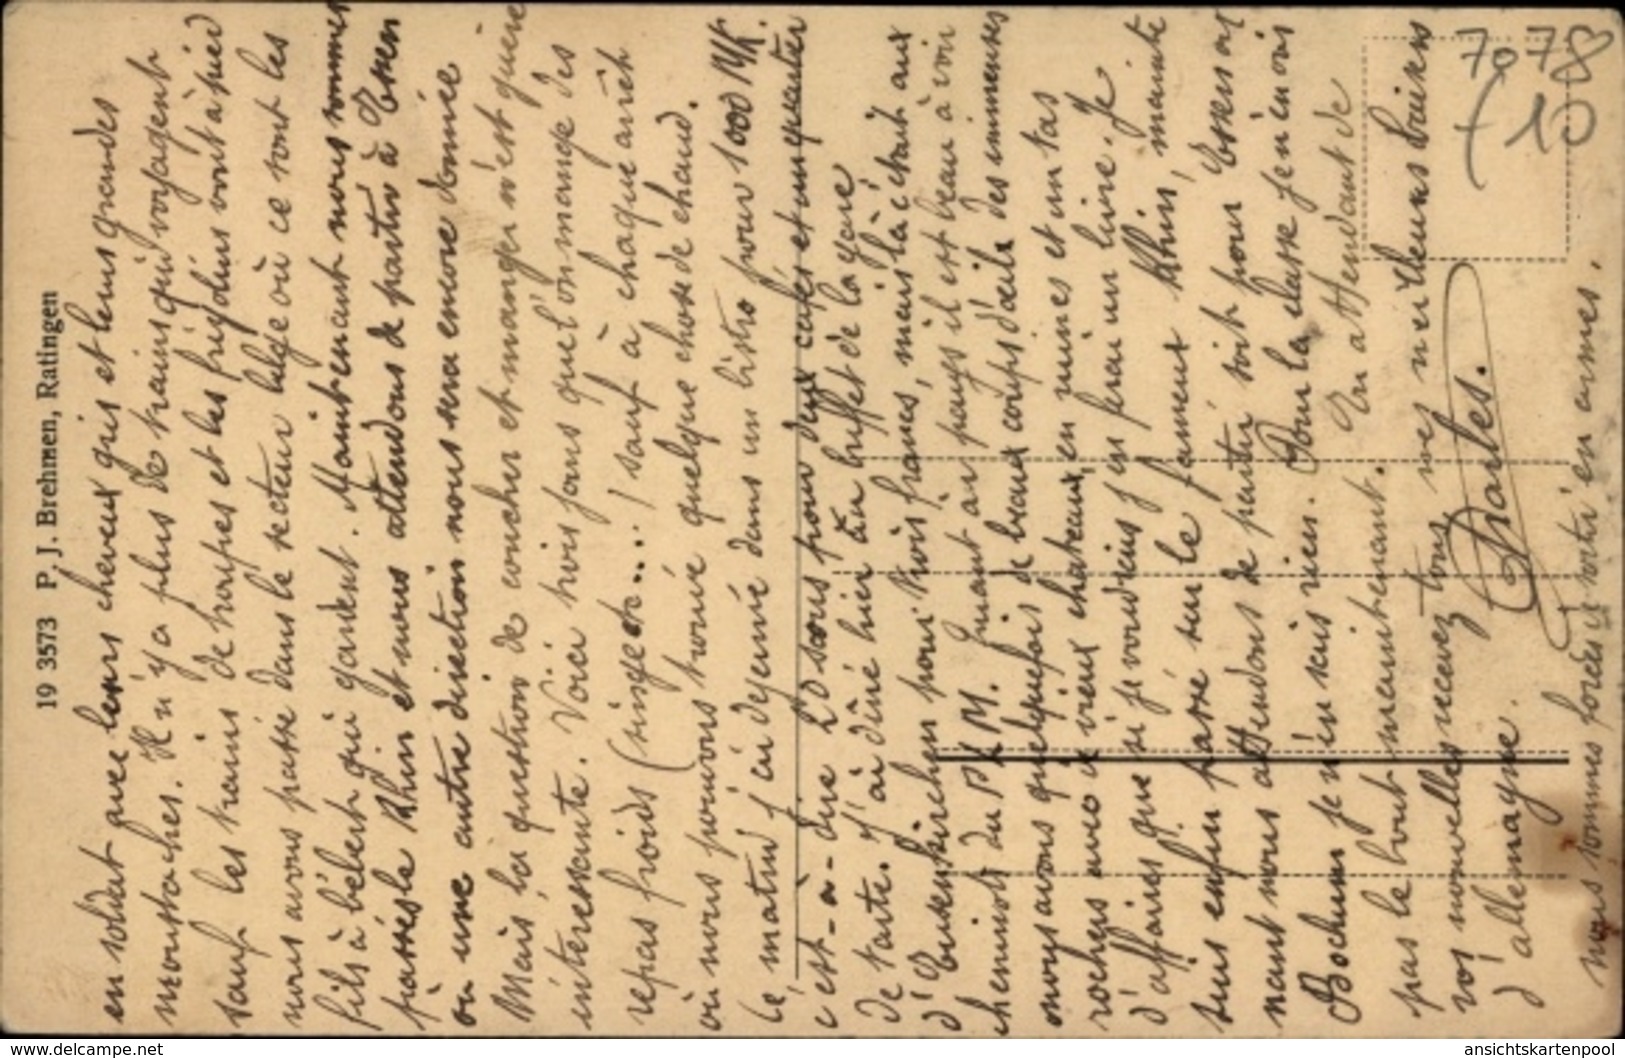 19 3573 P. J. Brehmen, Ratingen
en soldat avec leurs cheveux gris et leurs grandes
moustaches. Il n'y a plus de trains qui voyagent
sauf les trains de troupes et les fridolins vont à pied
nous avons passé dans le secteur belge où ce sont les
fils à bébert qui gardent. Maintenant nous sommes
passés le Rhin et nous attendons de partir à Essen
où une autre direction nous sera encore donnée
Mais la question de coucher et manger n'est guère
intéressante. Voici trois jours que l'on mange des
repas froids (singe etc...) sauf à chaque arrêt
où nous pouvons trouver quelque chose de chaud.
Le matin j'ai dejeuné dans un bistro pour 1000 Mk.
c'est-à-dire 20 sous pour deux cafés et un quartier
de tarte. J'ai diné hier au buffet de la gare
d'Euskirchen pour trois francs, mais là c'était aux
cheminots du P.L.M. Quant au pays il est beau à voir
nous avons quelquefois de beaux coups d'œil des immenses
rochers avec de vieux chateaux en ruines et un tas
d'affaires que si je voudrais j'en ferai un livre. Je
suis enfin passé sur le fameux Rhin, mainte
nant nous attendons de partir soit pour Essen ou
Bochum je n'en sais rien. Pour la classe je n'en vois
pas le bout maintenant. En attendant de
vos nouvelles recevez tous mes meilleurs baisers
d'allemagne. Charles.
nous sommes forcés de sortir en armes.
7078
10
www.delcampe.net
ansichtskartenpool